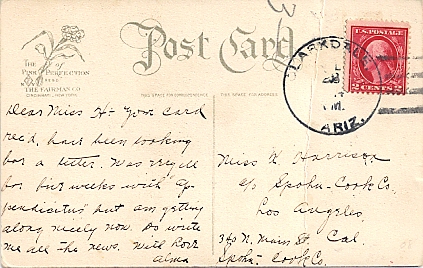 THE PINK OF PERFECTION
THE FAIRMAN CO
CINCINNATI, NEW YORK
Post Card
THIS SPACE FOR CORRESPONDENCE
THIS SPACE FOR ADDRESS
CLARKDALE
ARIZ.
U.S. POSTAGE
2 CENTS 2
Dear Miss H- Your card
rec'd, have been looking
for a letter. Was very ill
for five weeks with Ap-
pendicitus but am getting
along nicely now. Do write
me all the news. With love
Alma
Miss K. Harrison
c/o Spohn-Cook Co.
Los Angeles,
340 N. Main St. Cal.
Spohn-Cook Co.